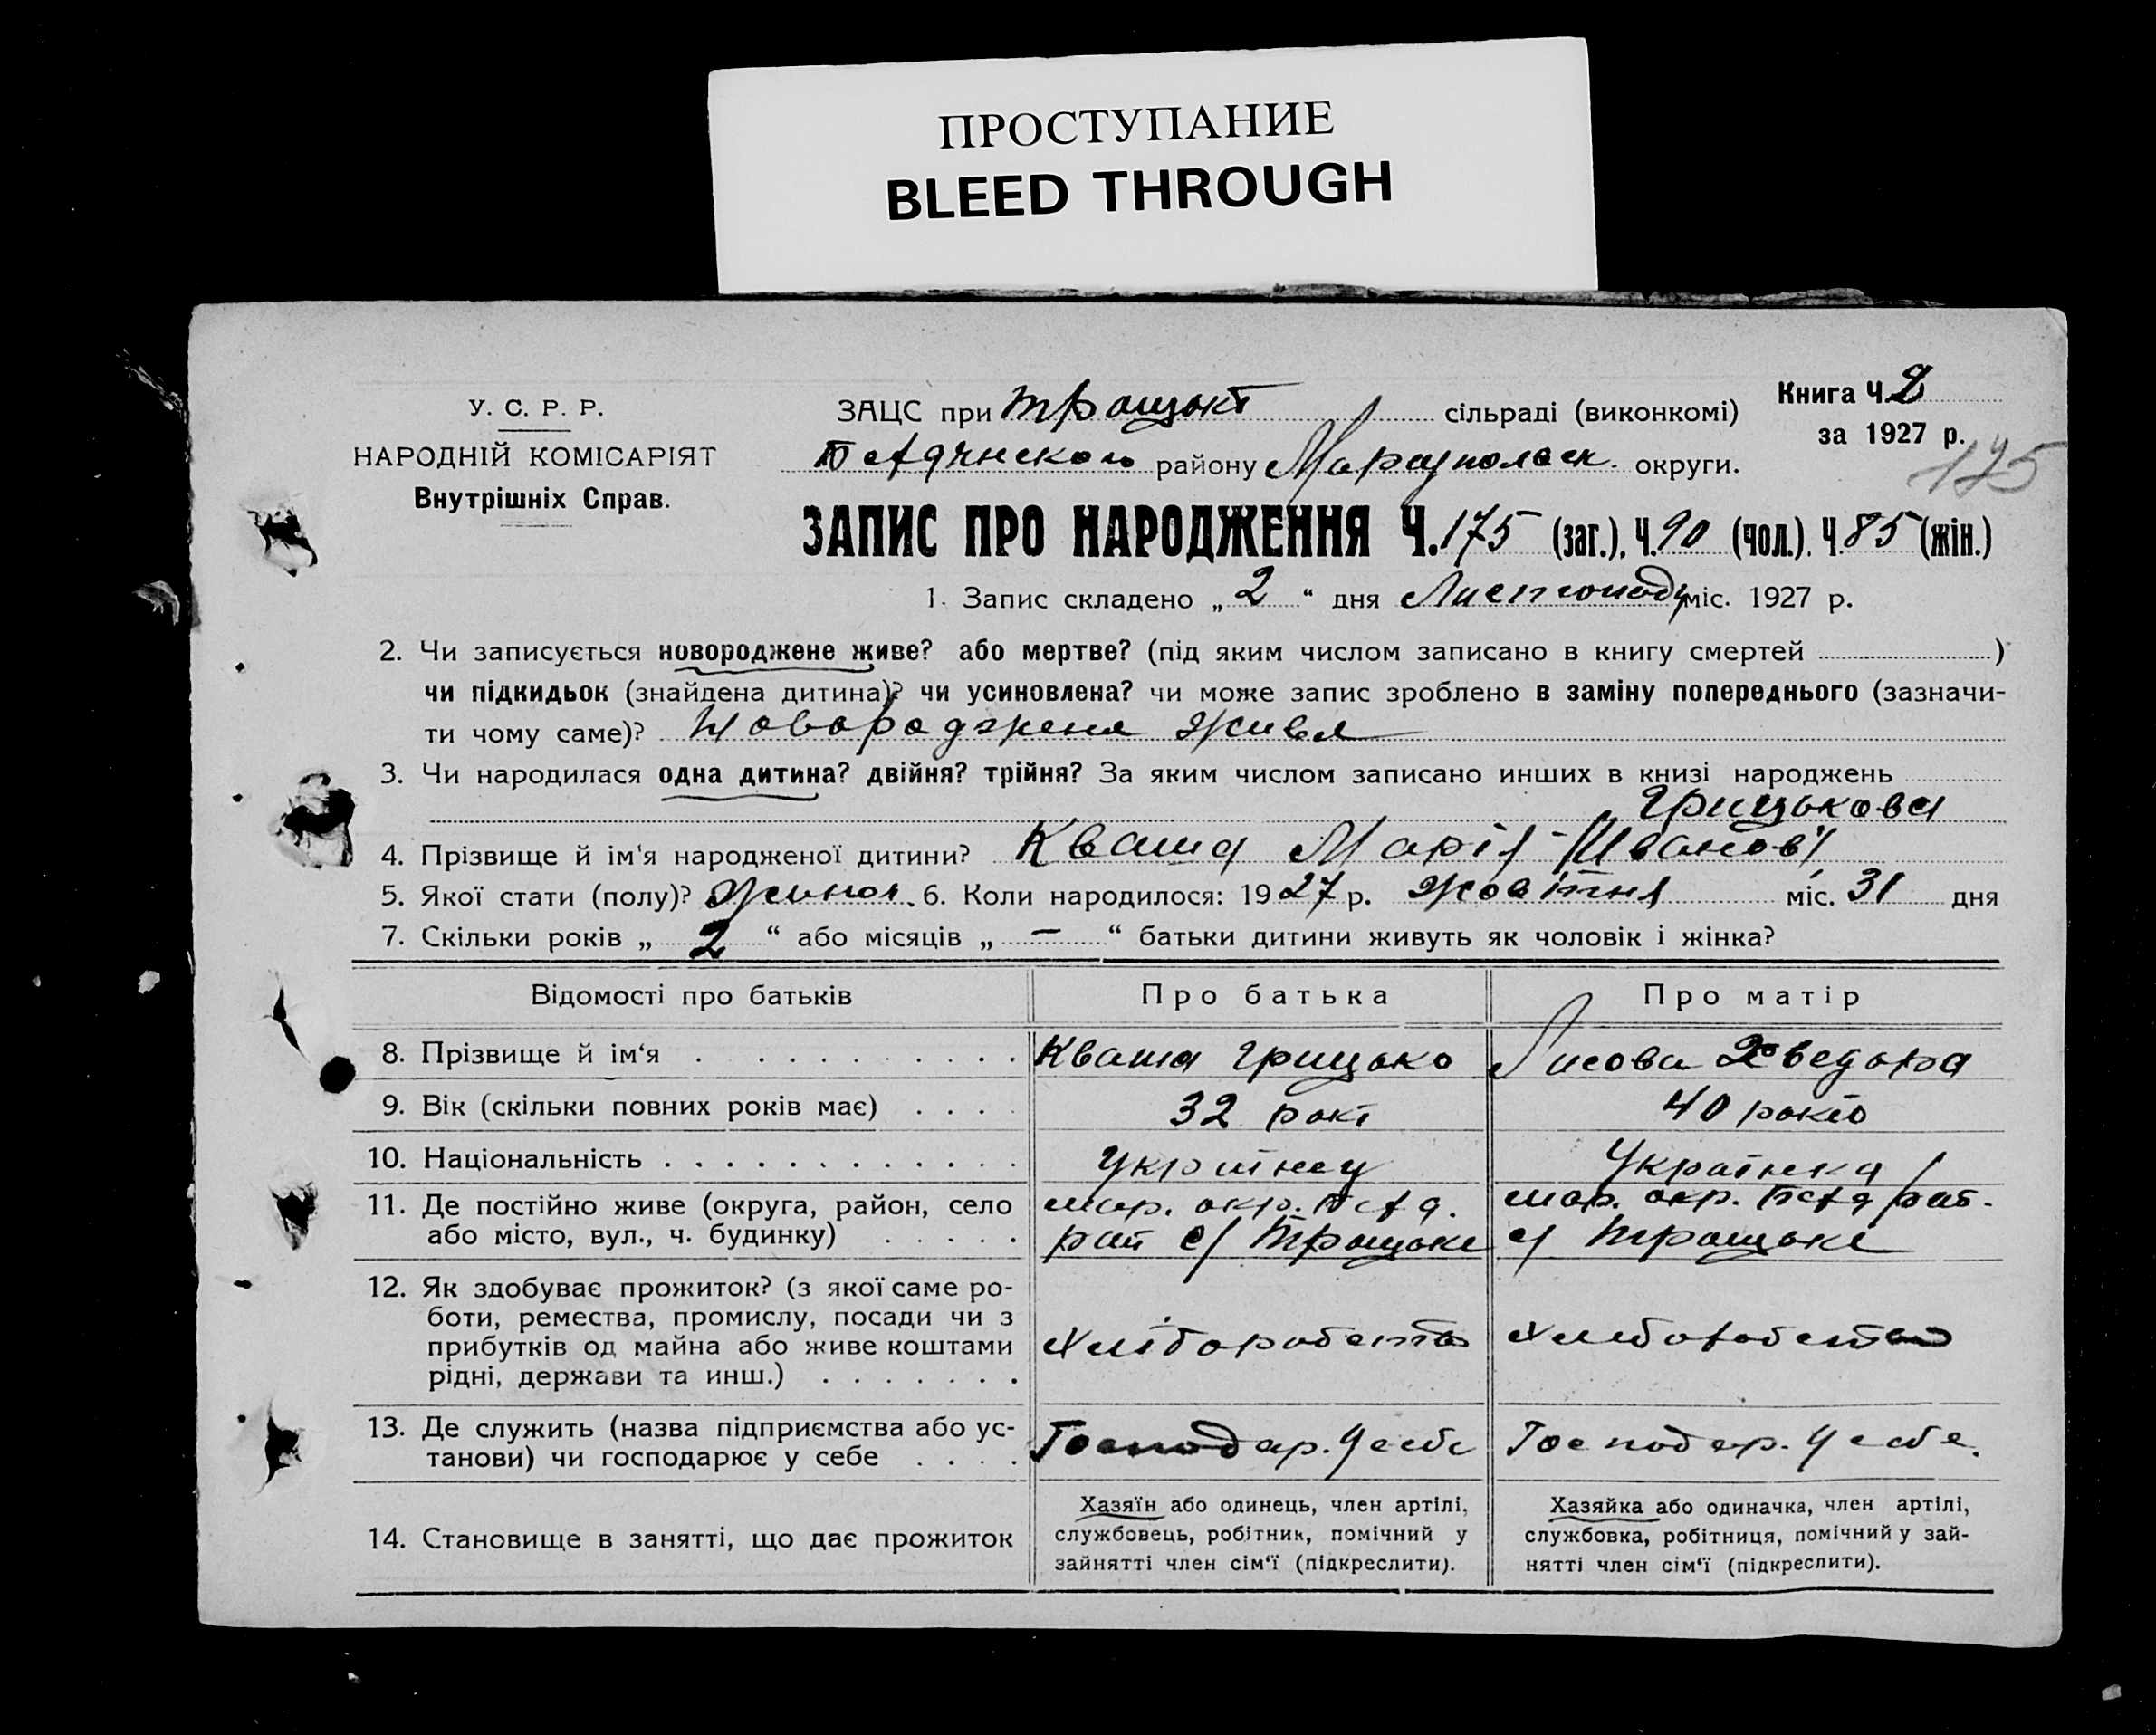 ПРОСТУПАНИЕ
BLEED THROUGH
Книга Ч. 2
за 1927 р.
175
У. С. Р. Р.
НАРОДНІЙ КОМІСАРІЯТ
Внутрішніх Справ.
ЗАЦС при сільраді (виконкомі)
району округи.
ЗАПИС ПРО НАРОДЖЕННЯ Ч. 175 (заг.). Ч. 90 (чол.). Ч. 85 (жін.)
1. Запис складено „ 2 “ дня Листопаду міс. 1927 р.
2. Чи записується новороджене живе? або мертве? (під яким числом записано в книгу смертей )
чи підкидьок (знайдена дитина)? чи усиновлена? чи може запис зроблено в заміну попереднього (зазначи-
ти чому саме)? Новороджена жива
3. Чи народилася одна дитина? двійня? трійня? За яким числом записано инших в книзі народжень
Грицькова
4. Прізвище й ім'я народженої дитини? Кваша Марія
5. Якої стати (полу)? 6. Коли народилося: 1927 р. Жовтня міс. 31 дня
7. Скільки років „ 2 “ або місяців „ — “ батьки дитини живуть як чоловік і жінка?
Відомості про батьків Про батька Про матір
8. Прізвище й ім'я Кваша Грицько Лисова
9. Вік (скільки повних років має) 32 рокі 40 років
10. Національність Українец Українка
11. Де постійно живе (округа, район, село мар. окр. мар. окр.
або місто, вул., ч. будинку) рай с/ с/
12. Як здобуває прожиток? (з якої саме ро-
боти, ремества, промислу, посади чи з
прибутків од майна або живе коштами
рідні, держави та инш.)
13. Де служить (назва підприємства або ус-
танови) чи господарює у себе Господар. у себе Господар. у себе.
14. Становище в занятті, що дає прожиток
Хазяїн або одинець, член артілі,
службовець, робітник, помічний у
зайнятті член сім'ї (підкреслити).
Хазяйка або одиначка, член артілі,
службовка, робітниця, помічний у зай-
нятті член сім'ї (підкреслити).